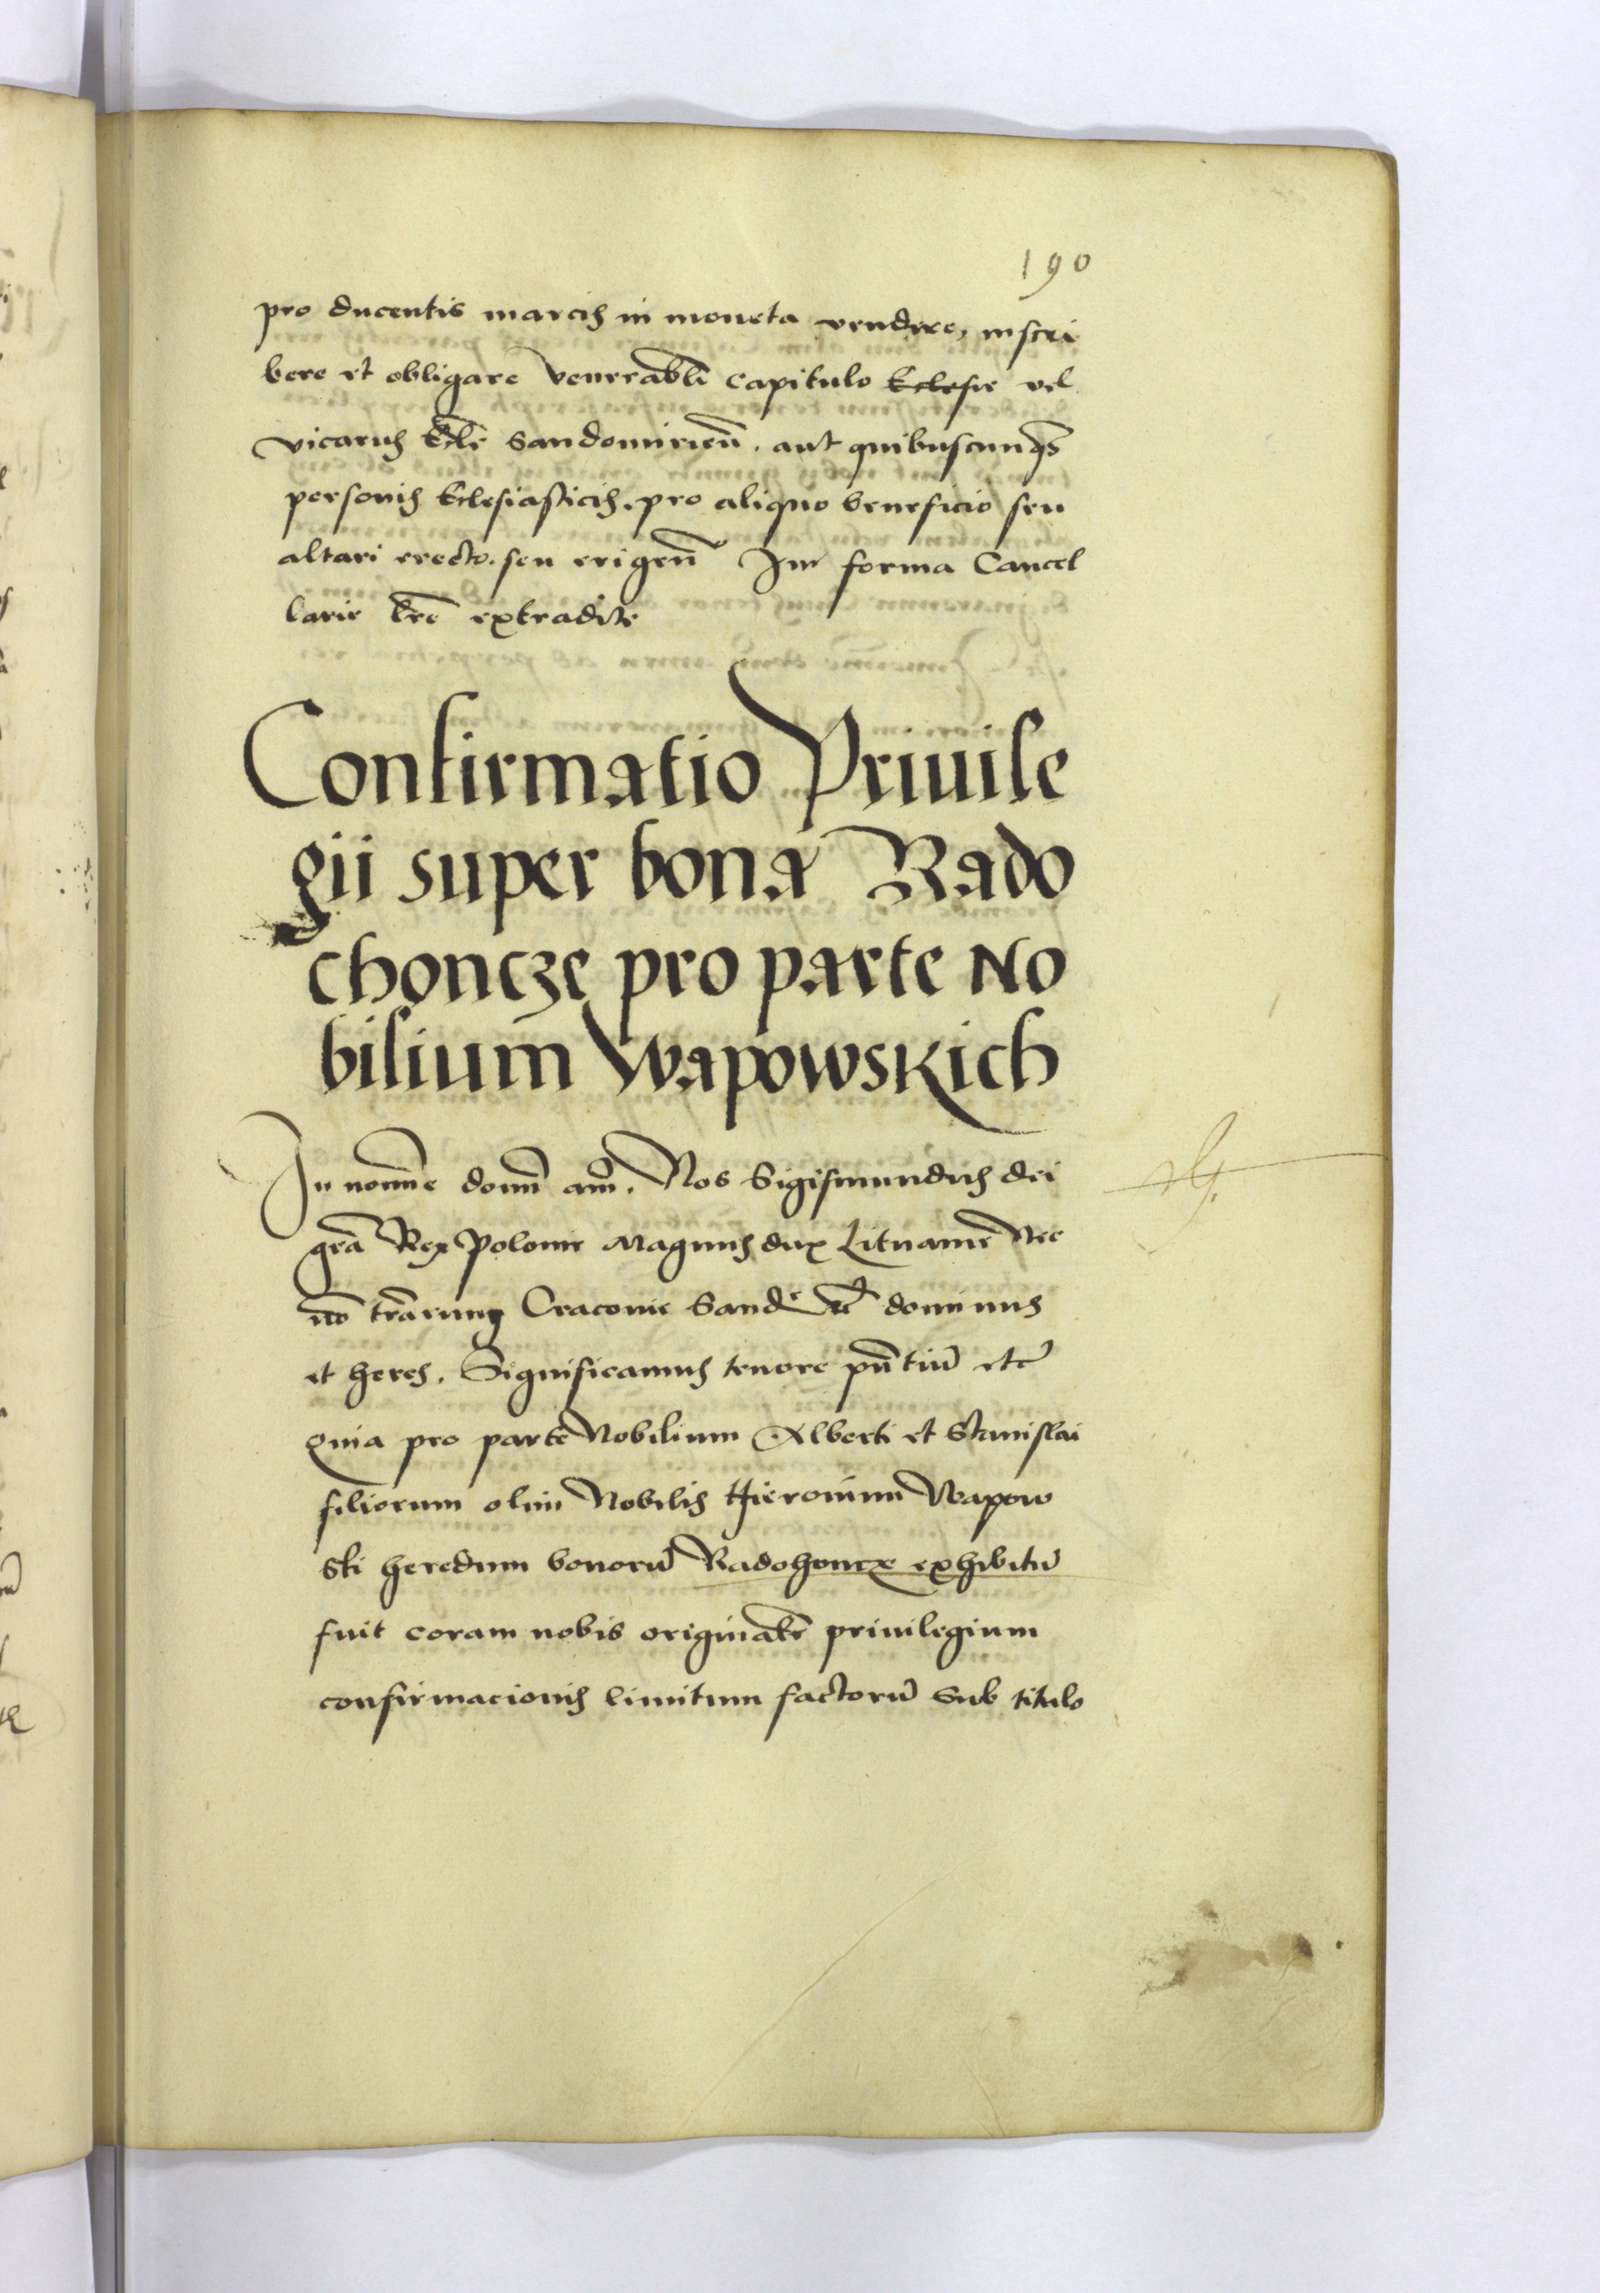 190
pro ducentis marcis in moneta vendere, inscri
bere et obligare Venerabli Capitulo Eclesie vel
vicariis Eclē Sandomirieñ. aut quibuscunqȝ
personis Eclesiasticis. pro aliquo beneficio seu
altari erecto. seu erigeñ In forma Cancel
larie lrē extradite
Confirmatio Priuile
gii super bona Rado
choncze pro parte No
bilium Wapowskich
In nomine domī amē. Nos Sigismundus dei
grā Rex Polonie Magnus dux Lituanie Nec
nō trārum Craconie Sand etc dominus
et heres. Significamus tenore pñtiū etc
Quia pro parte Nobilium Alberti et Stanislai
filiorum olim Nobilis Hieronimi Wapow
ski heredum bonorū Radohoncze exhibitū
fuit coram nobis originale priuilegium
confirmacionis limitum factorū Sub titulo